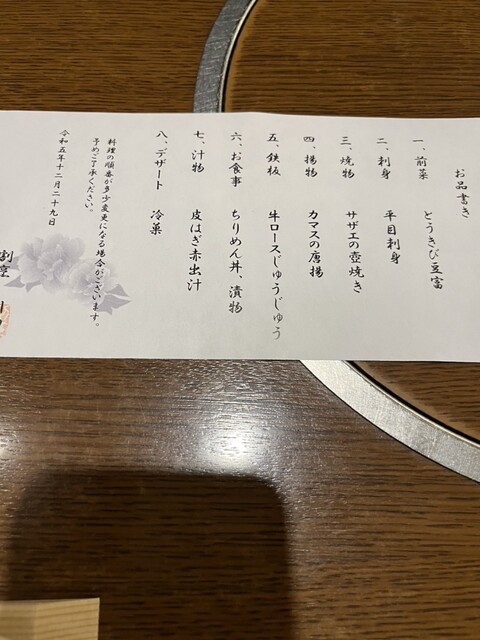 お品書き
一、前菜 とうきび豆富
二、刺身 平目刺身
三、焼物 サザエの壺焼き
四、揚物 カマスの唐揚
五、鉄板 牛ロースじゅうじゅう
六、お食事 ちりめん丼、漬物
七、汁物 皮はぎ赤出汁
八、デザート 冷菓
料理の順番が多少変更になる場合がございます。
予めご了承ください。
令和五年十二月二十九日
割烹